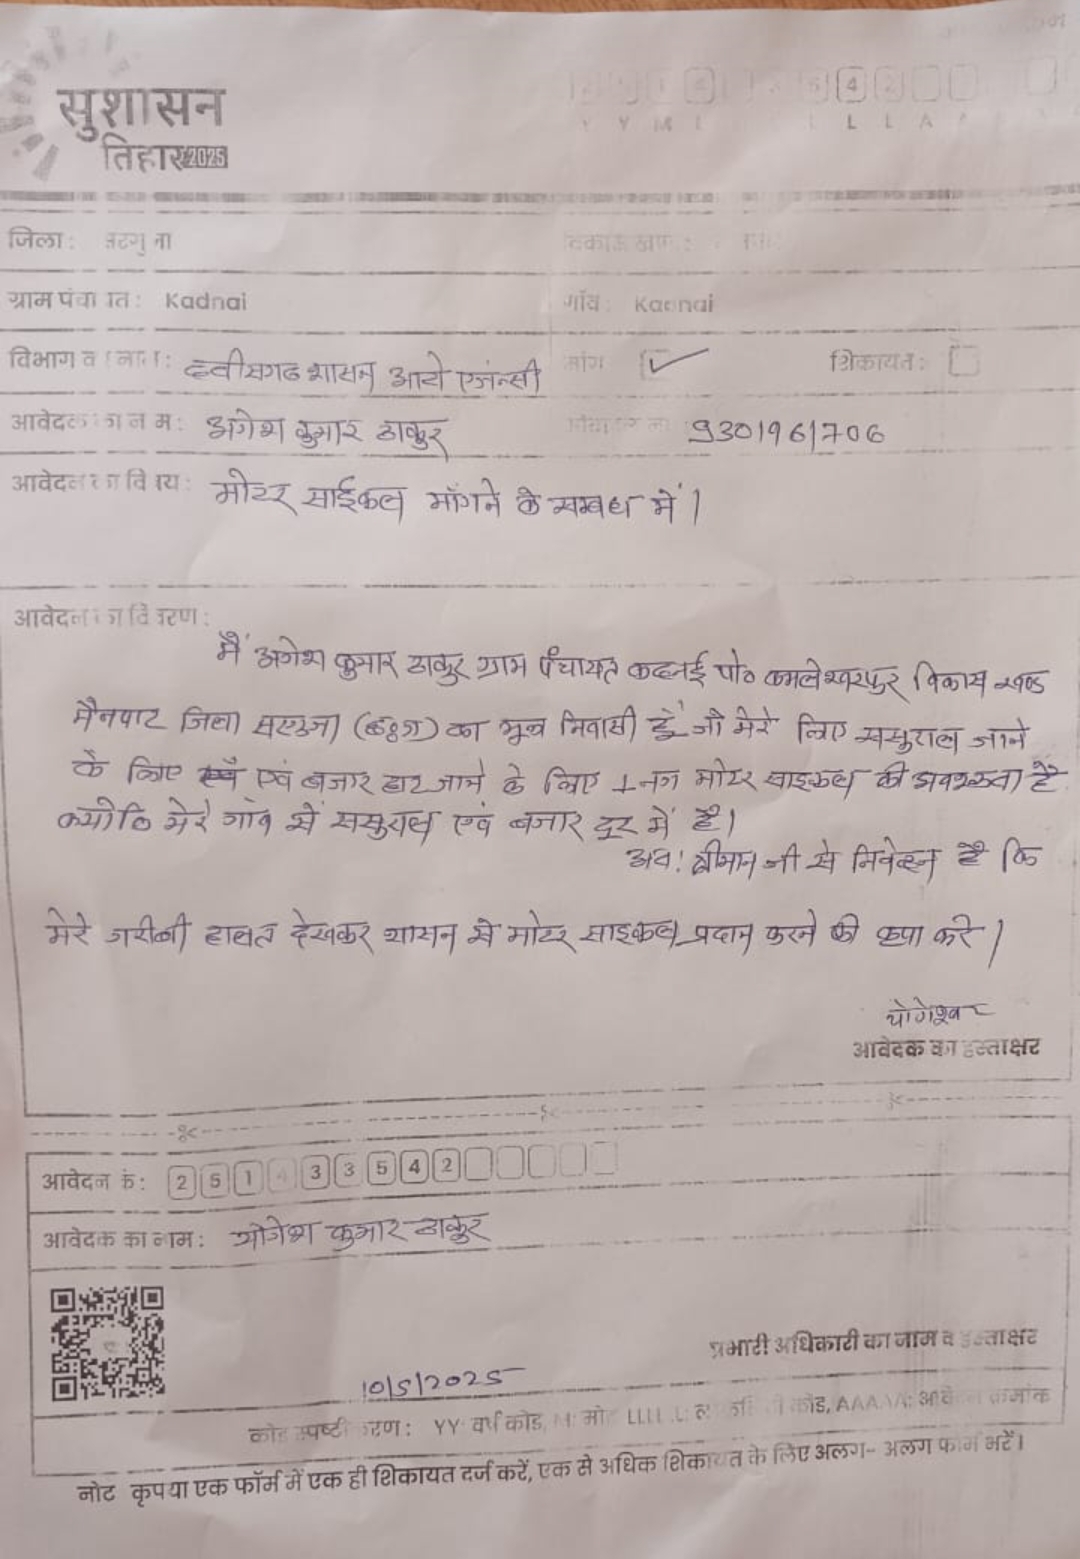 सुशासन
तिहार 2025
4 2
L L A
जिला :
ग्राम पंचायत : Kadnai
गाँव : Kadnai
विभाग का नाम : छत्तीसगढ शासन आटो एजेन्सी
मांग ✓ शिकायत :
आवेदक का नाम : अगेश कुमार ठाकुर 9301961706
आवेदन का विषय : मोटर साईकल माँगने के सम्बध में।
आवेदन का विवरण :
मैं अगेश कुमार ठाकुर ग्राम पंचायत कदनई पो० कमलेश्वरपुर विकास खण्ड
मैनपाट जिला सरगुजा (छ०ग) का मूल निवासी हूँ जो मेरे लिए ससुराल जाने
के लिए एवं बजार हाट जाने के लिए 1 नग मोटर साइकल की अवश्कता है
क्योकि मेरे गांव से ससुराल एवं बजार दूर में है।
अतः श्रीमान जी से निवेदन है कि
मेरे गरीबी हालत देखकर शासन से मोटर साइकल प्रदान करने की कृपा करे।
योगेश्वर
आवेदक का हस्ताक्षर
आवेदन क्रं : 2 5 1 4 3 3 5 4 2
आवेदक का नाम : योगेश कुमार ठाकुर
प्रभारी अधिकारी का नाम व हस्ताक्षर
10/5/2025
कोड स्पष्टीकरण : YY वर्ष कोड, क्रमांक
नोट कृपया एक फॉर्म में एक ही शिकायत दर्ज करें, एक से अधिक शिकायत के लिए अलग- अलग फार्म भरें।